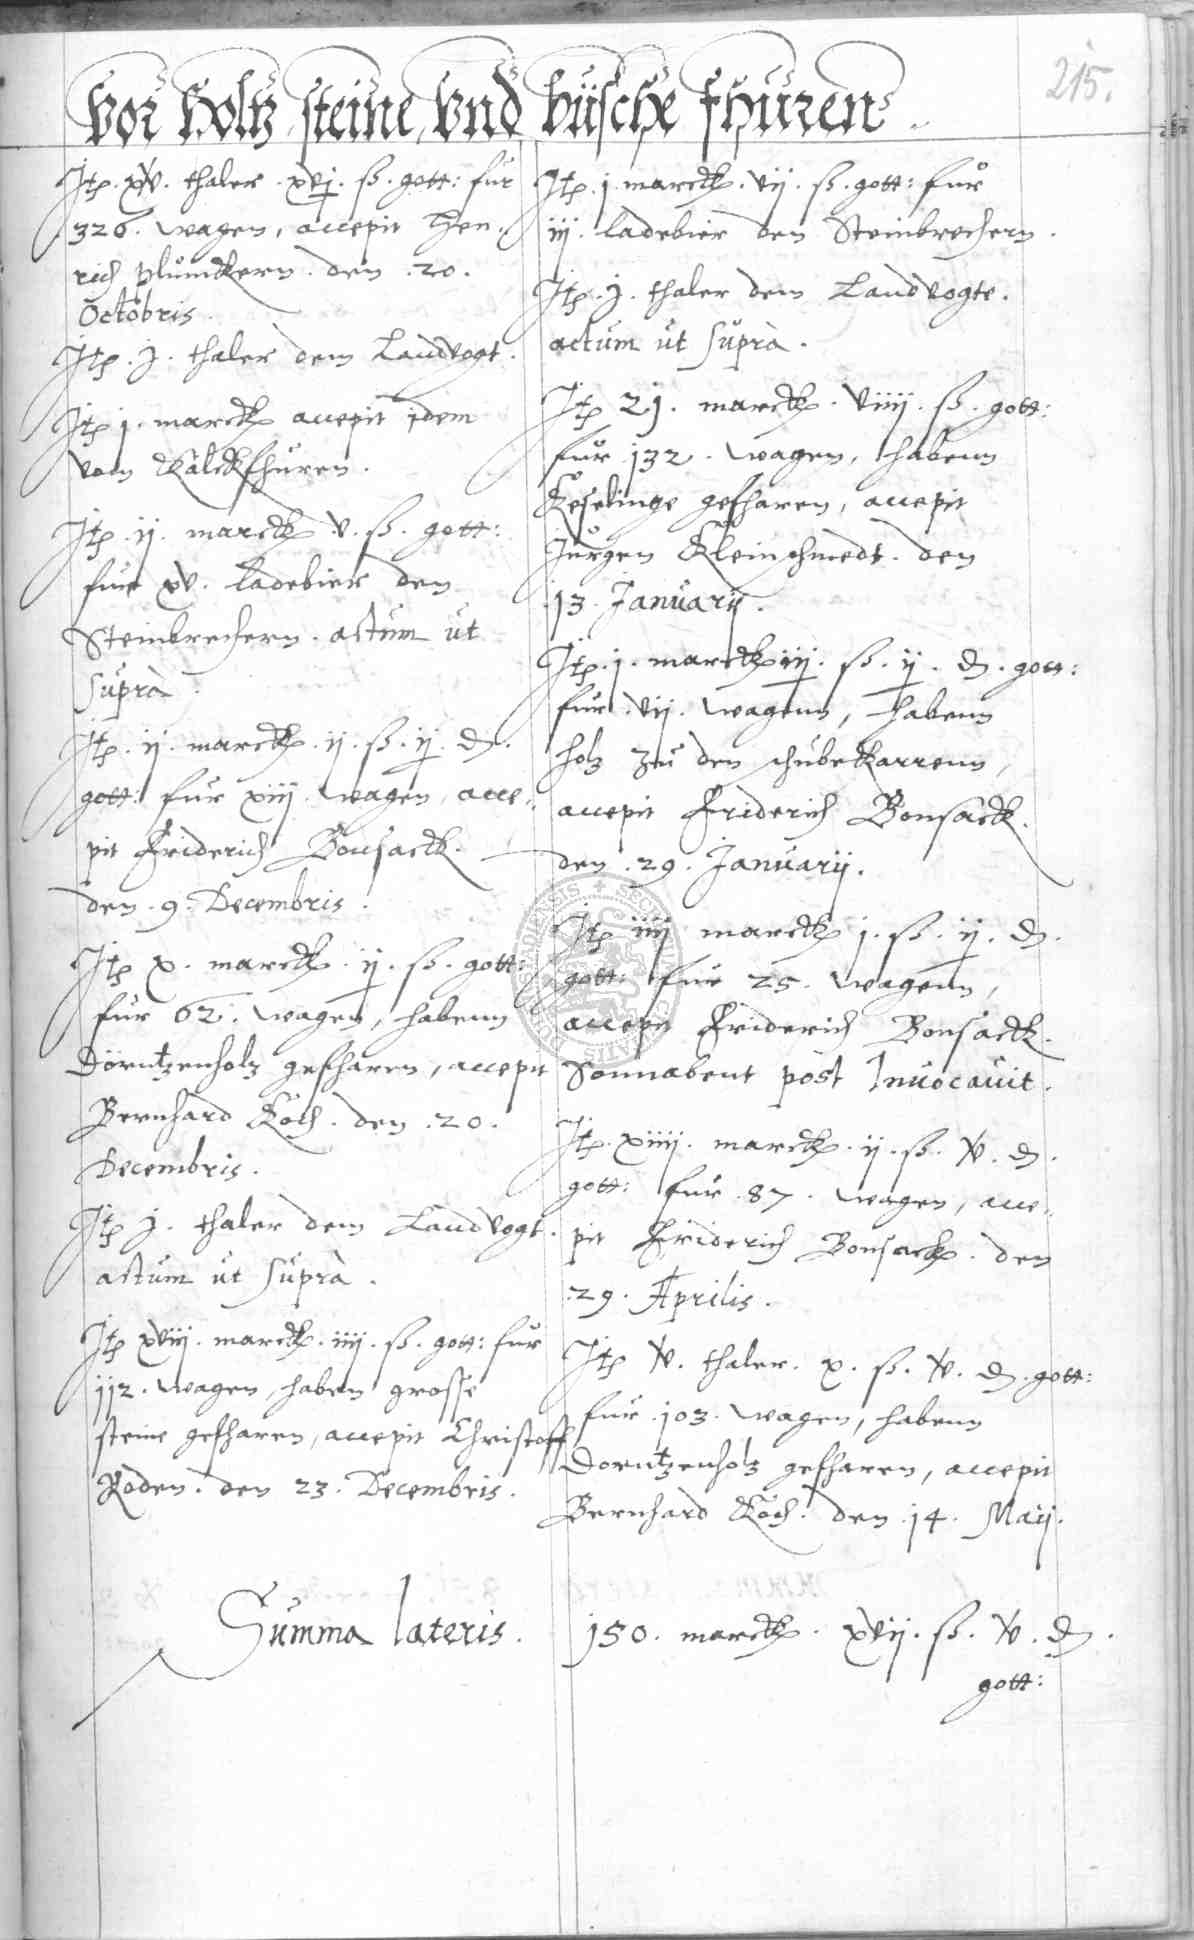 215.
Vor holtz steine Vnd büsche fhuren
Itp. xv. thaler. xvj. ß. gott: fur
326. wagen, accepit Hen-
rich Plumekern. den .20.
Octobris.
Itp. j. thaler dem Landvogt.
Itp j. marck accepit idem
vom Kalckfhuren.
Itp. ij. marck v. ß. gott:
fur xv. ladebier den
Steinbrechern. actum ut
supra.
Itp. ij. marck. ij. ß. ij. d.
gott: fur xiij wagen, acce-
pit Friderich Bonsack.
den .9. Decembris.
Itp x. marck. ij. ß. gott:
fur 62. wagen, habenn
Dorntzenholtz gefharen, accepit
Bernhard Koch. den .20.
Decembris.
Itp j. thaler dem Landvogt.
actum ut supra.
Itp xviij. marck. iiij. ß. gott: fur
112. wagen, haben grosse
steine gefharen, accepit Christoff
Roden. den 23. Decembris.
Itp. j. marck. vij. ß. gott: fur
iij. ladebier den Steinbrechern.
Itp. j. thaler dem Landvogte.
actum ut supra.
Itp 21. marck. viiij. ß. gott:
fur 132. wagen, habenn
Keselinge gefharen, accepit
Jurgen Kleinschmedt. den
13. Januarij.
Itp. j. marck iij. ß. ij. d. gott:
fur .vij. wagenn, habenn
holtz zu den schubekarrenn,
accepit Friderich Bonsack.
den .29. Januarij.
Itp iiij marck j. ß. ij. d.
gott: fur 25. wagenn,
accepit Friderich Bonsack.
Sonnabent post Inuocauit.
Itp. xiiij. marck. ij. ß. v. d.
gott: fur .87. wagen, acce-
pit Friderich Bonsack. den
.29. Aprilis.
Itp v. thaler. x. ß. v. d. gott:
fur .103. wagen, habenn
Dorntzenholtz gefharen, accepit
Bernhard Koch. den .14. Maij.
Summa lateris. 150. marck. xvij. ß. v. d.
gott: